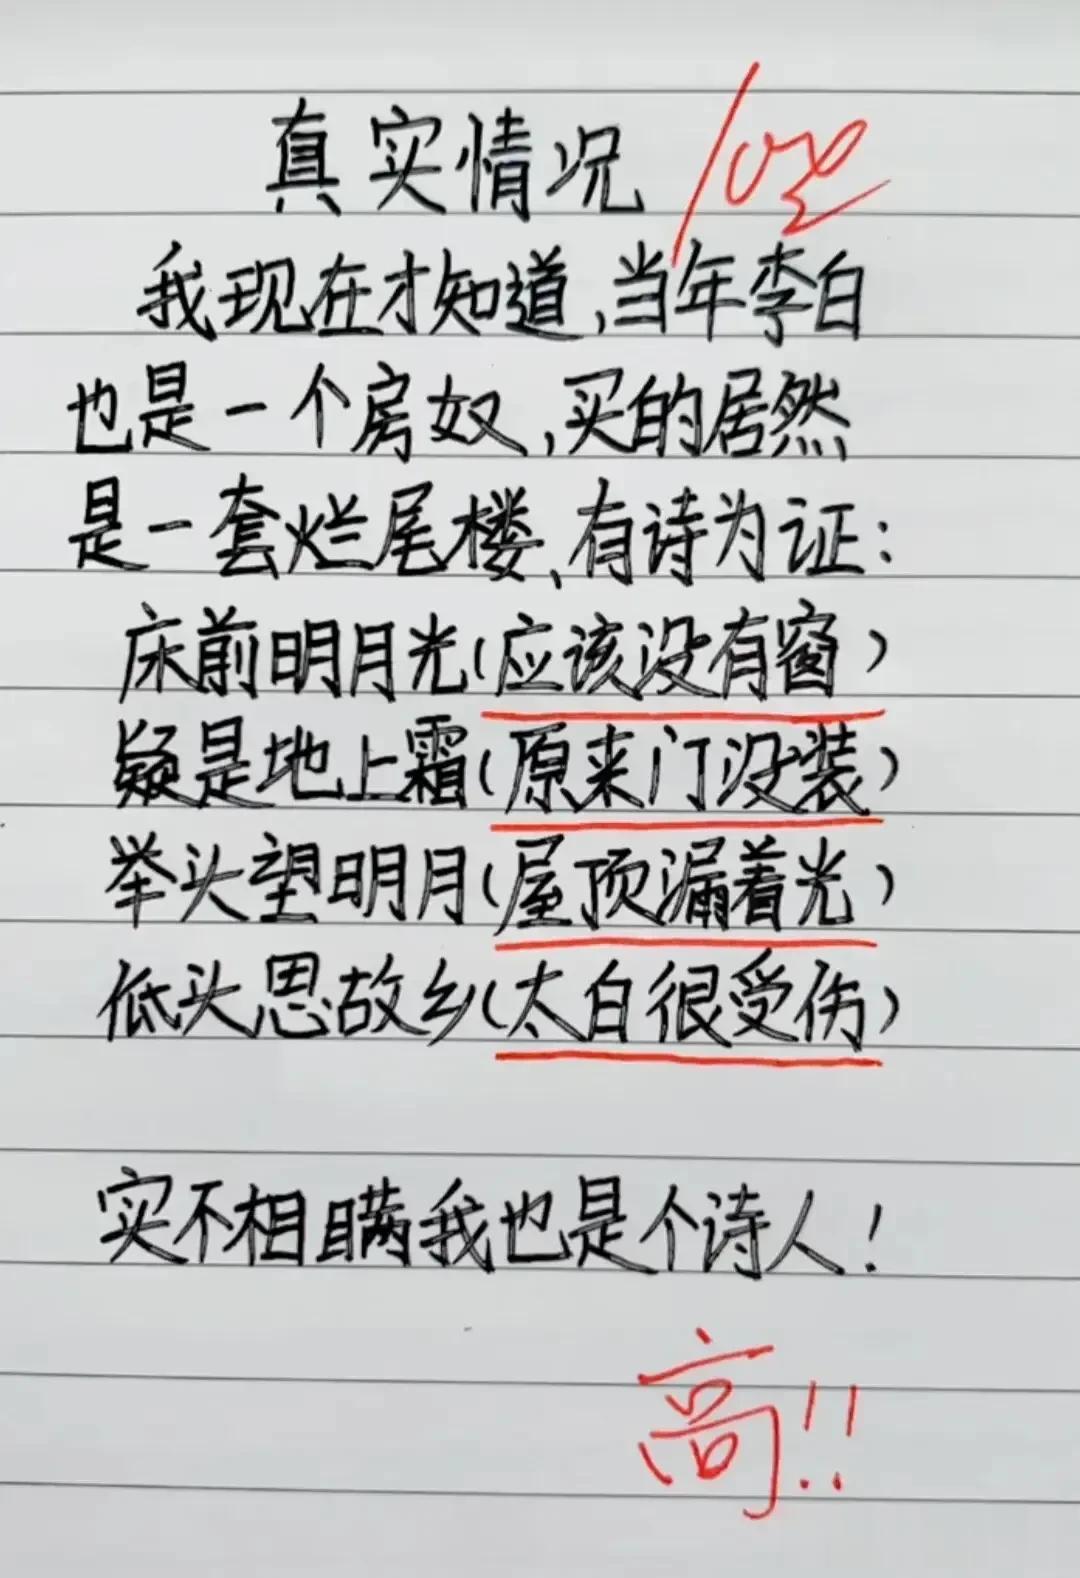 真实情况 100
我现在才知道,当年李白
也是一个房奴,买的居然
是一套烂尾楼,有诗为证:
床前明月光(应该没有窗)
疑是地上霜(原来门没装)
举头望明月(屋顶漏着光)
低头思故乡(太白很受伤)
实不相瞒我也是个诗人!
高!!